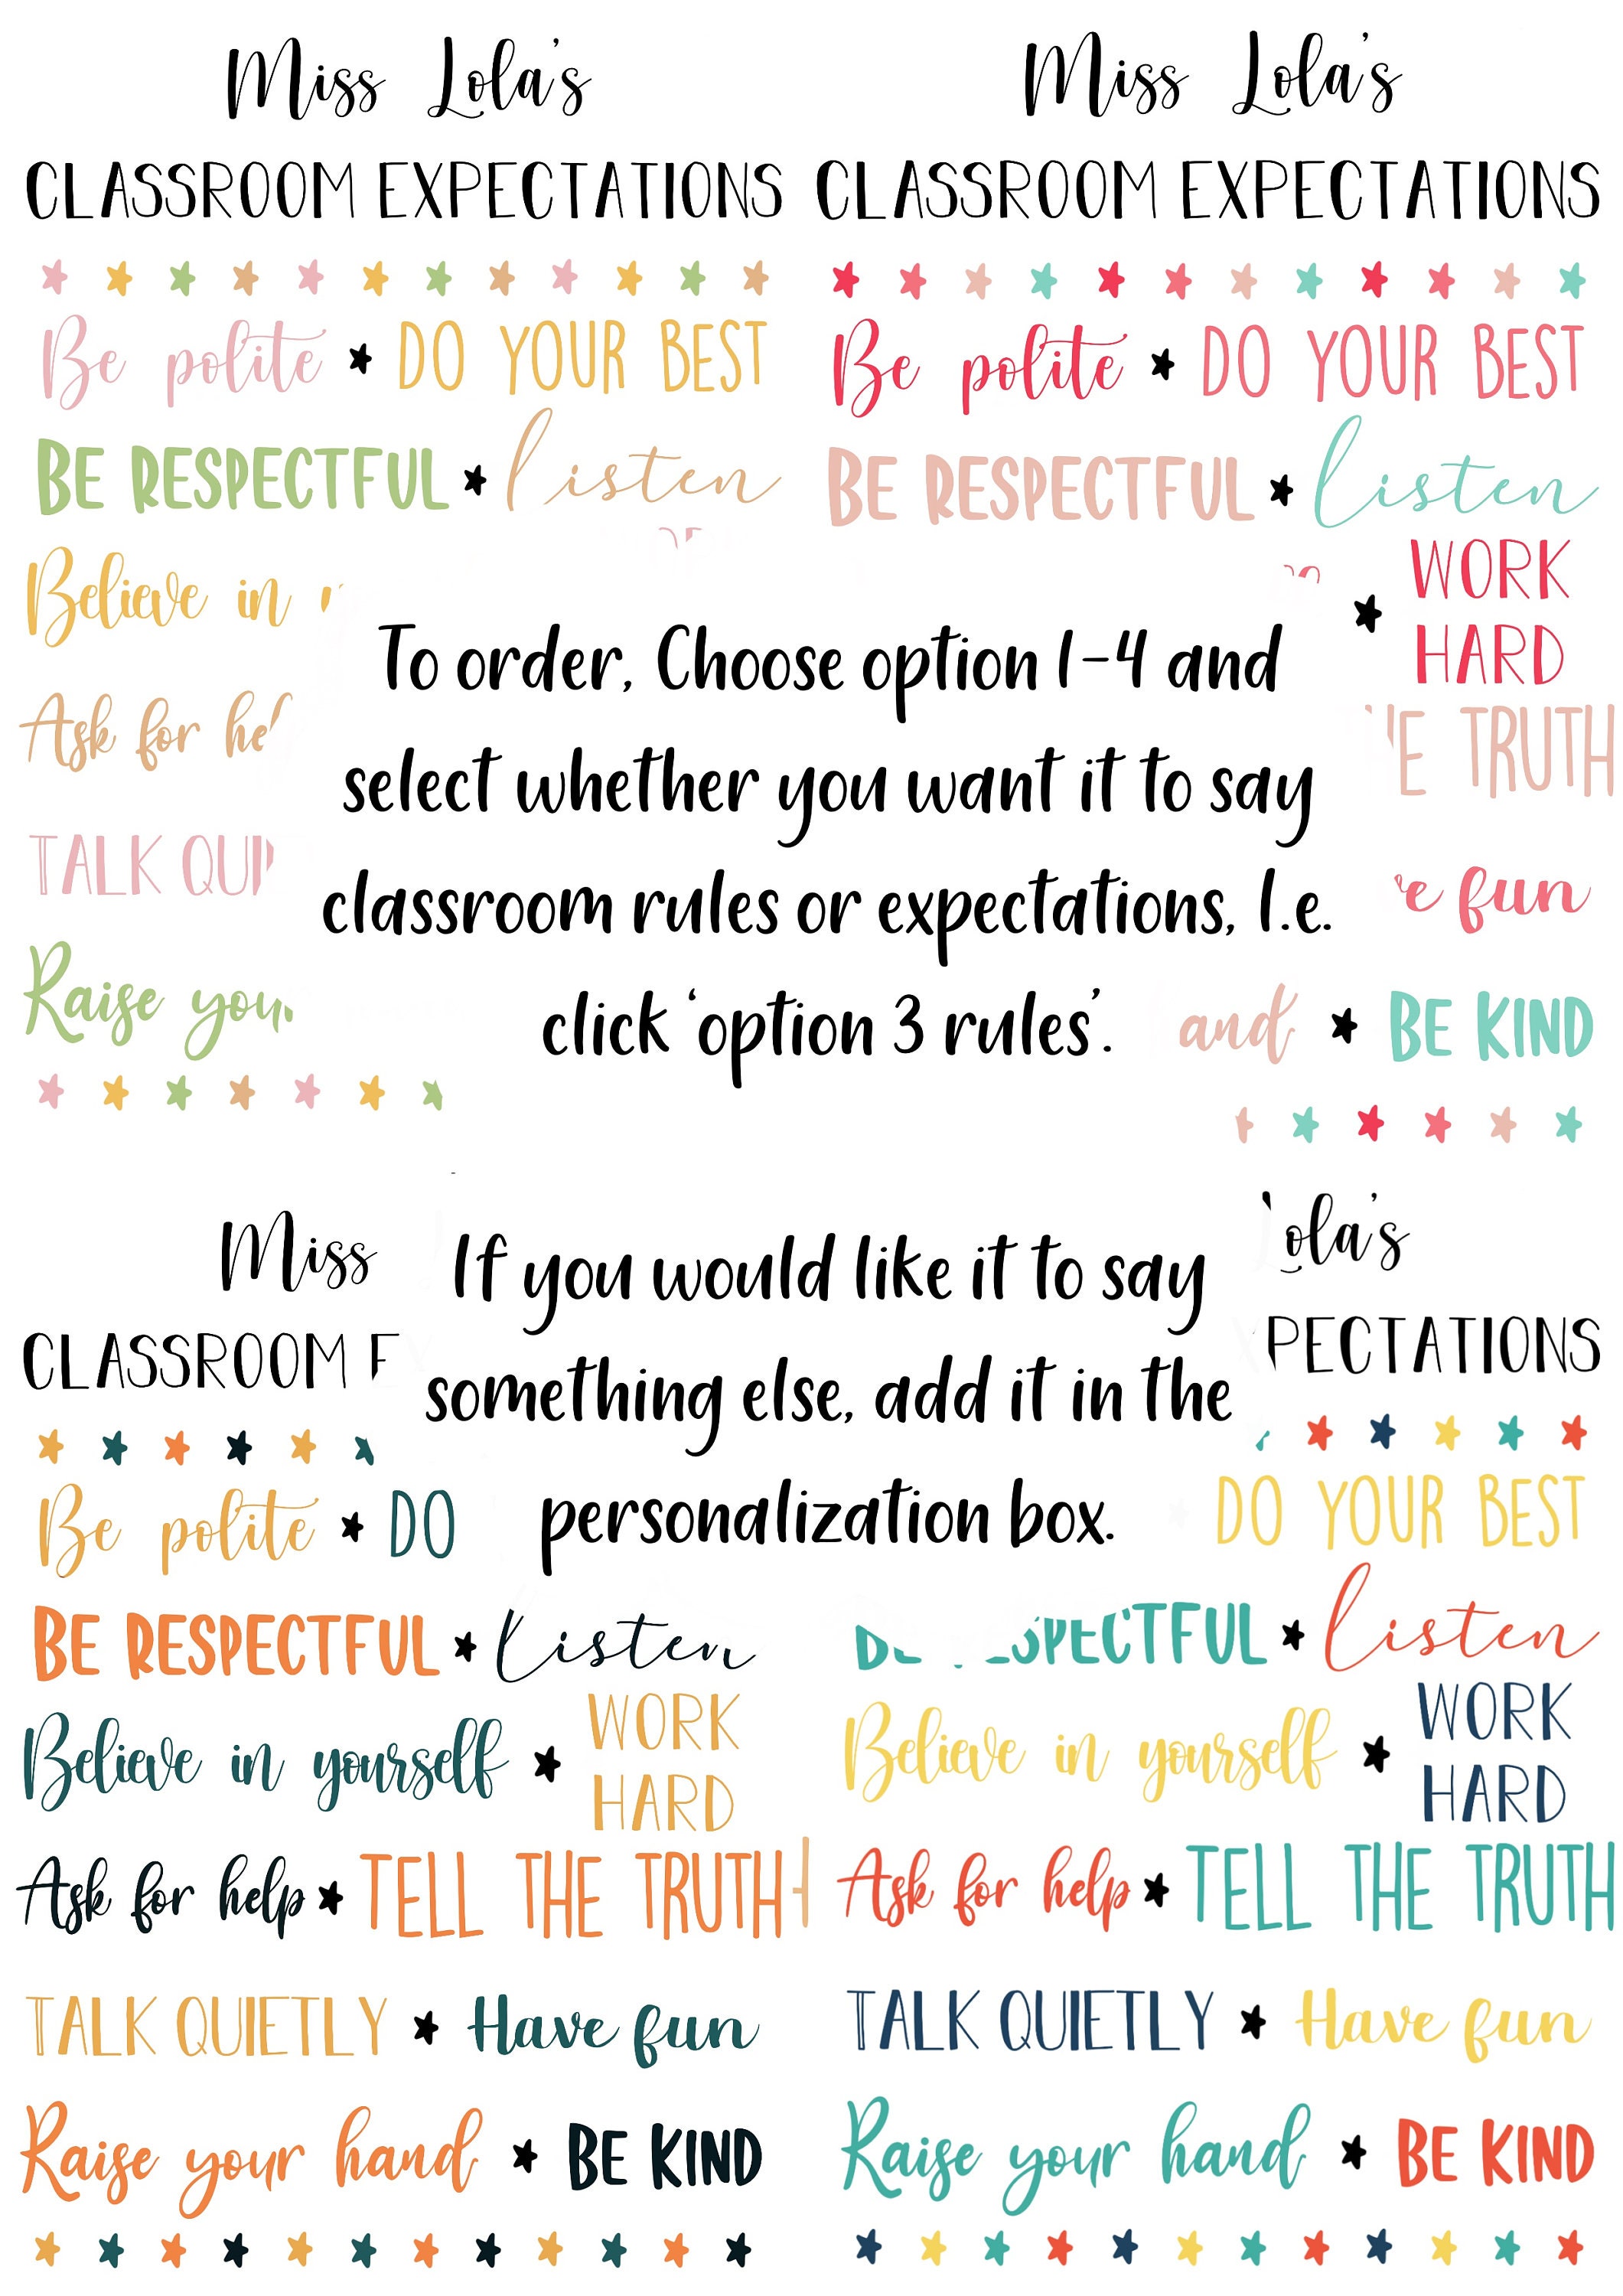 Miss Lola's
CLASSROOM EXPECTATIONS
Be polite DO YOUR BEST
BE RESPECTFUL listen
Believe in
Ask for
TALK
Raise
Miss Lola's
CLASSROOM EXPECTATIONS
Be polite DO YOUR BEST
BE RESPECTFUL listen
WORK
HARD
TRUTH
fun
BE KIND
To order, Choose option 1-4 and
select whether you want it to say
classroom rules or expectations, I.e.
click 'option 3 rules'.
If you would like it to say
something else, add it in the
personalization box.
Miss
CLASSROOM
Be polite DO
BE RESPECTFUL listen
Believe in yourself WORK
HARD
Ask for help TELL THE TRUTH
TALK QUIETLY Have fun
Raise your hand BE KIND
DO YOUR BEST
listen
Believe in yourself WORK
HARD
Ask for help TELL THE TRUTH
TALK QUIETLY Have fun
Raise your hand BE KIND